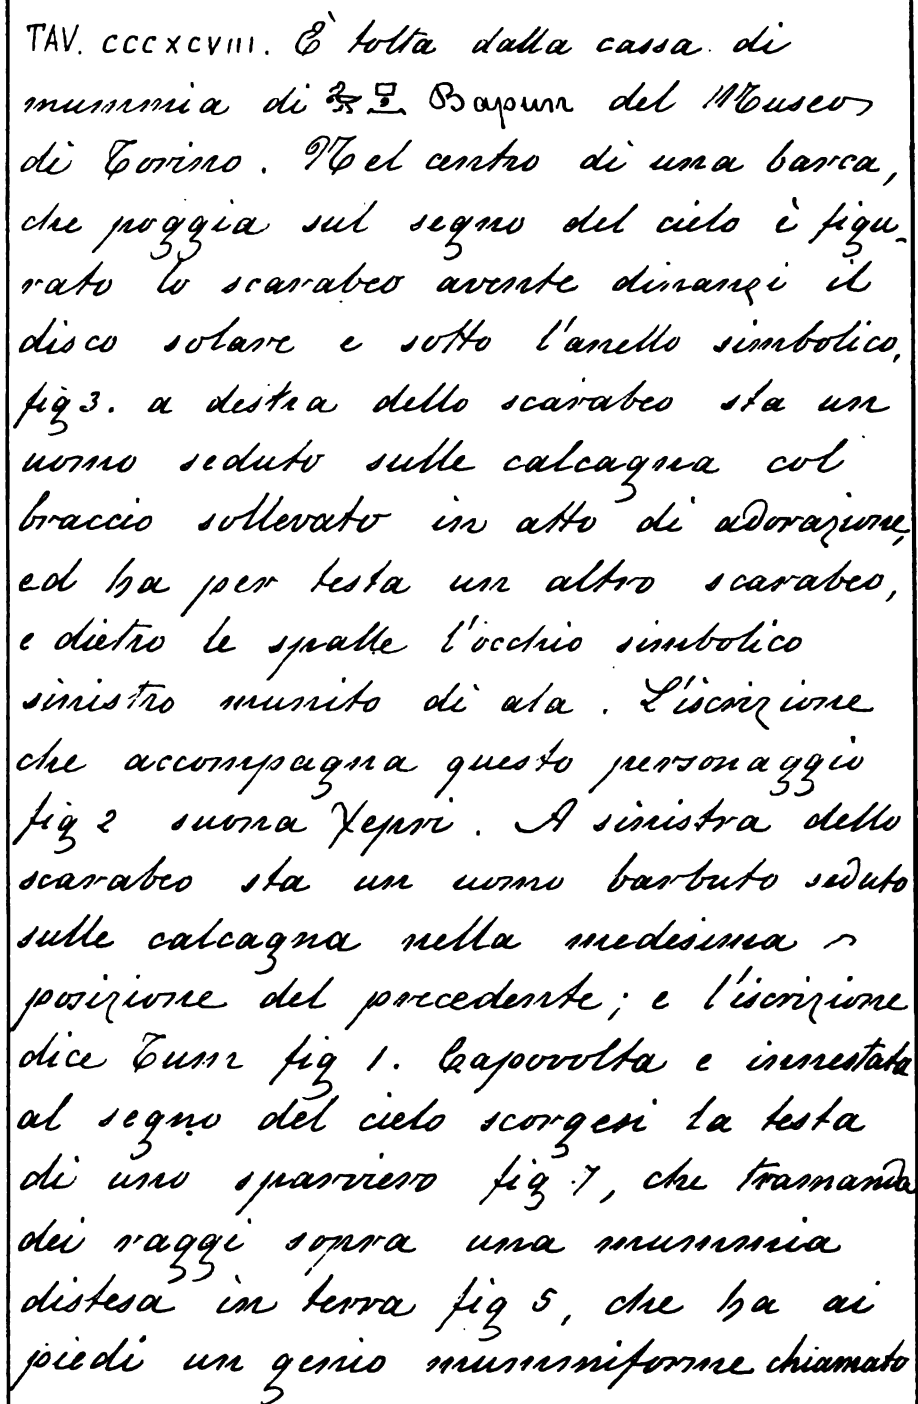 TAV. CCCXCVIII. È tolta dalla cassa di
mummia di Bapun del Museo
di Torino. Nel centro di una barca,
che poggia sul segno del cielo è figu-
rato lo scarabeo avente dinanzi il
disco solare e sotto l'anello simbolico,
fig 3. a destra dello scarabeo sta un
uomo seduto sulle calcagna col
braccio sollevato in atto di adorazione,
ed ha per testa un altro scarabeo,
e dietro le spalle l'occhio simbolico
sinistro munito di ala. L'iscrizione
che accompagna questo personaggio
fig 2 suona χepri. A sinistra dello
scarabeo sta un uomo barbuto seduto
sulle calcagna nella medesima
posizione del precedente; e l'iscrizione
dice Tum fig 1. Capovolta e innestata
al segno del cielo scorgesi la testa
di uno sparviero fig 7, che tramanda
dei raggi sopra una mummia
distesa in terra fig 5, che ha ai
piedi un genio mummiforme chiamato